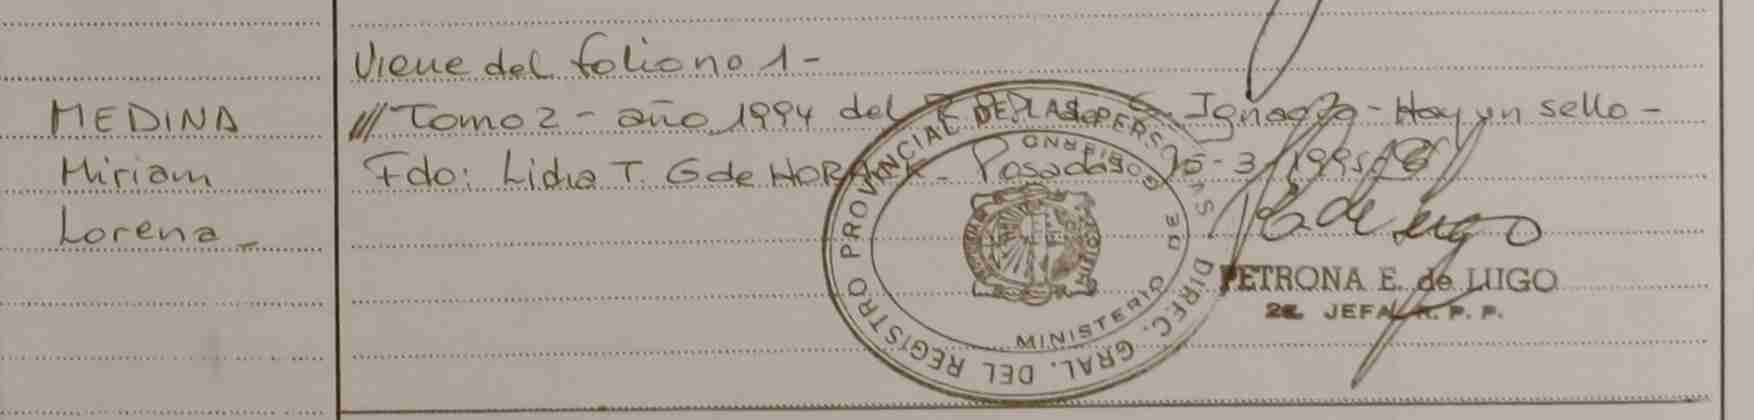 Viene del folio no 1-
MEDINA
Miriam
Lorena_
/// Tomo 2 - año 1994 del Ignacio - Hay un sello -
Fdo: Lidia T. G de - Posadas, 15-3-1995
DIREC. GRAL. DEL REGISTRO PROVINCIAL DE LAS PERSONAS
MINISTERIO DE GOBIERNO
PETRONA E. de LUGO
2ª JEFA R. P. P.